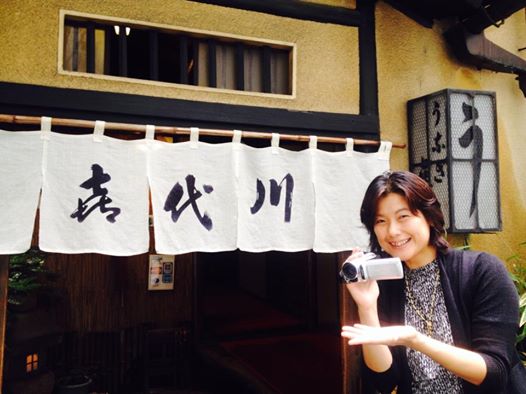 喜代川
うなぎ
う